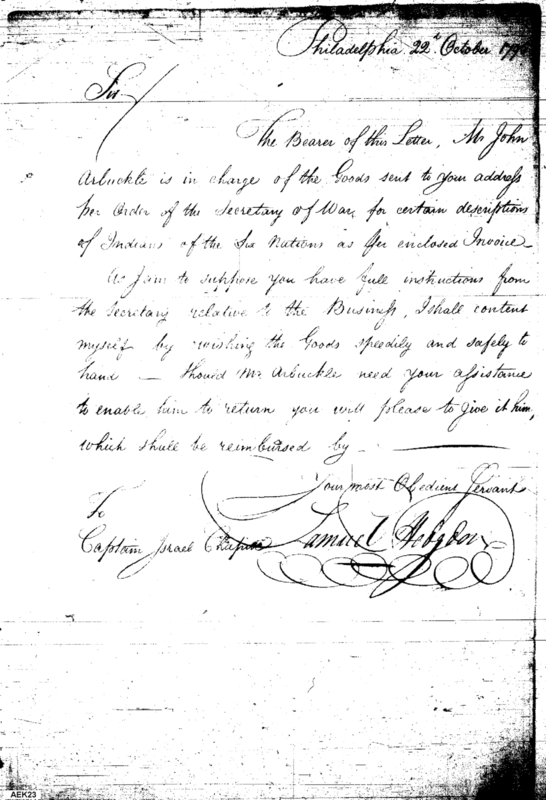 Philadelphia 22d October 179
Sir
The Bearer of this Letter, Mr John
Arbuckle is in charge of the Goods sent to your address
per Order of the Secretary of War, for certain descriptions
of Indians of the Six Nations as per enclosed Invoice —
As I am to suppose you have full instructions from
the Secretary relative to the Business, I shall content
myself by wishing the Goods speedily and safely to
hand — Should Mr Arbuckle need your assistance
to enable him to return you will please to give it him,
which shall be reimbursed by —
Your most Obedient Servant
Samuel Hodgdon
To
Captain Israel Chapin
AEK23